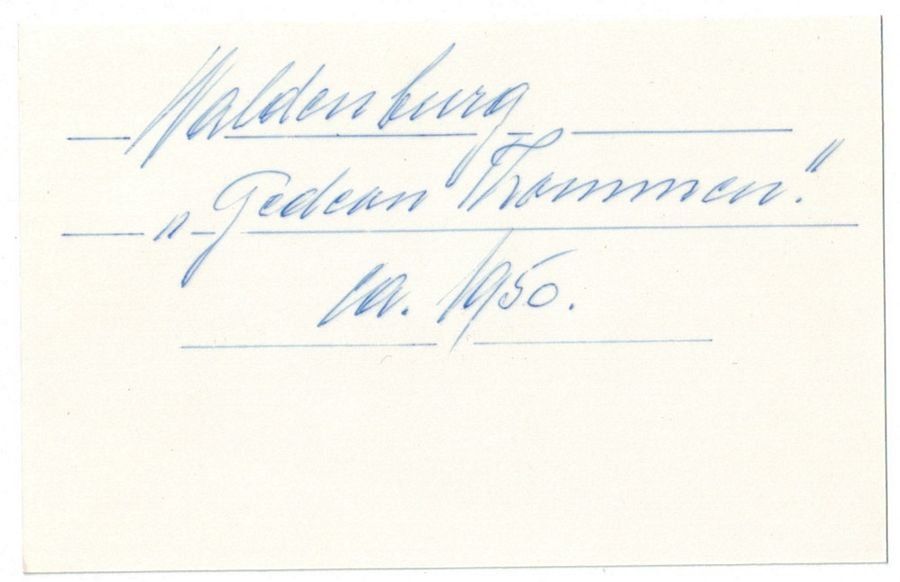 Waldenburg
„Gedeon Thommen."
ca. 1950.